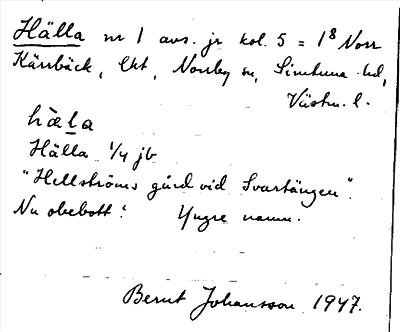 Hälla nr 1 avs. jr kol. 5 = 1⁸ Norr
Kärrbäck, lkt, Norrby sn, Simtuna hd,
Västm. l.
hä̀la
Hälla ¼ jb
"Hellströms gård vid Svartängen".
Nu obebott. Yngre namn.
Bernt Johansson 1947.